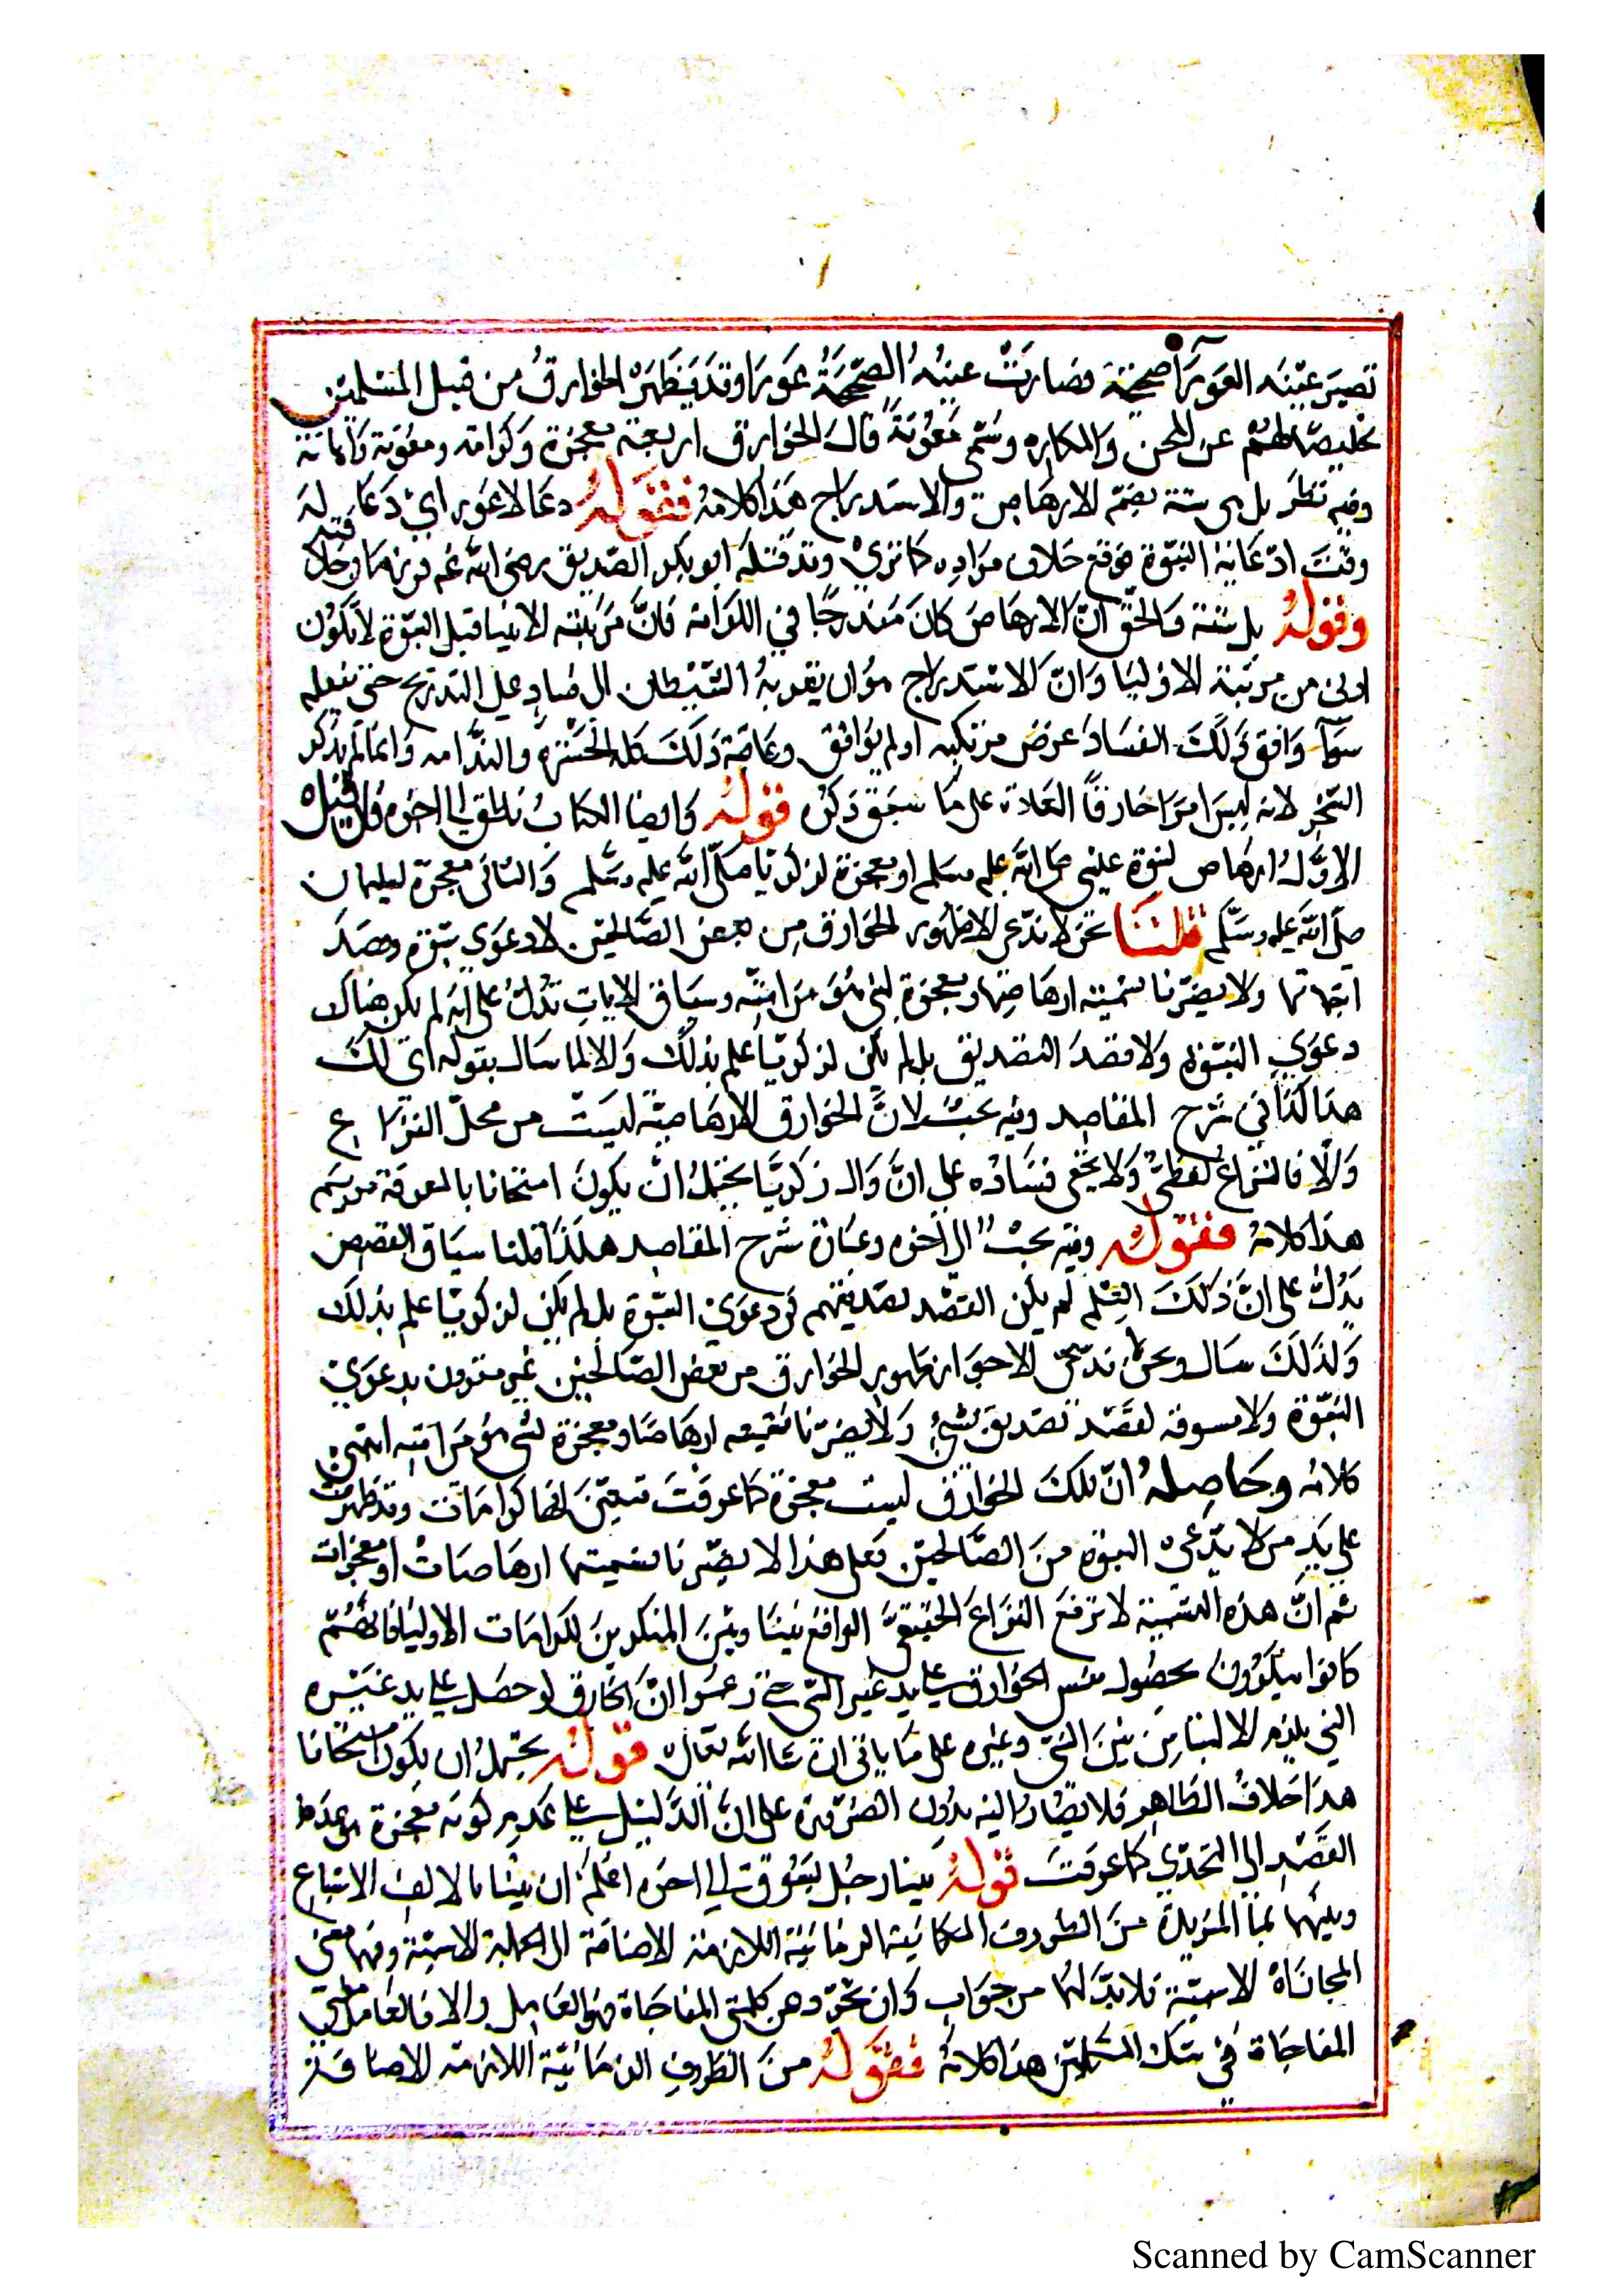 تصير عينه العورآ صحيحة فصارت عينه الصحيحة عورا وقد يظهر الخوارق من قبل المسلمين
تخليصا لهم عن المحن والمكاره وسمى معونة قال الخوارق اربعة معجزة وكرامة ومعونة واهانة
وفيه نظر بل هي ستة بضم الارهاص والاستدراج هذا كلامه فقوله دعا لاعور اي دعا له
وقت ادعائه النبوة فوقع خلاف مراده كما ترى وقد قتله ابو بكر الصديق رضى الله عنه
وقوله بل ستة والحق ان الارهاص كان مندرجا في الكرامة فان مرتبة الانبيا قبل النبوة لا تكون
ادنى من مرتبة الاوليا وان الاستدراج هو ان يقربه الشيطان الى فساد على التدريج حتى يفعله
سوآ وافق ذلك الفساد غرض مرتكبه او لم يوافق وعاقبة ذلك كله الحسرة والندامه وانما لم يذكر
السحر لانه ليس امرا خارقا العادة على ما سبق ذكره قوله وايضا الكتاب نطق الى اخره فان قيل
الاول ارهاص لنبوة عيسى صلى الله عليه وسلم او معجزة لزكريا صلى الله عليه وسلم والثانى معجزة لسليمان
صلى الله عليه وسلم قلنا نحن لا ندعى الا ظهور الخوارق من بعض الصالحين لا دعوى نبوة وقصد
اثباتها ولا يضرنا تسميته ارهاصا او معجزة لنبى هو من امته وسياق الايات تدل على انه لم يكن هناك
دعوى النبوة ولا قصد التصديق بل لم يكن لزكريا علم بذلك والا لما سال بقوله انى لك
هذا كذا في شرح المقاصد وفيه بحث لان الخوارق الارهاصية ليست من محل النزاع
والا فالنزاع لفظى ولا يخفى فساده على ان سوال زكريا يحتمل ان يكون امتحانا بالمعرفة مريم
هذا كلامه فقوله وفيه بحث الى اخره وعبارة شرح المقاصد هكذا قلنا سياق القصص
يدل على ان ذلك لم يكن القصد تصديقهم في دعوى النبوة بل لم يكن لزكريا علم بذلك
ولذلك سال ونحن لا ندعى الا جواز ظهور الخوارق من بعض الصالحين غير مقرون بدعوى
النبوة ولا مسوقة لقصد تصديق نبى ولا يضرنا تسميته ارهاصا او معجزة لنبى هو من امته انتهى
كلامه وحاصله ان تلك الخوارق ليست معجزة كما عرفت فتعين انها كرامات وقد ظهرت
على يد من لا يدعى النبوة من الصالحين فعلى هذا لا يضرنا تسميتها ارهاصات او معجزات
ثم ان هذه التسمية لا ترفع النزاع الحقيقى الواقع بيننا وبين المنكرين لكرامات الاوليا فانهم
كانوا ينكرون بحصول نفس الخوارق على يد غير النبى زعموا ان الخارق لو حصل على يد غيره
النبى يلزم الالتباس بين النبى وغيره على ما ياتى ان شا الله تعالى قوله يحتمل ان يكون امتحانا
هذا خلاف الظاهر فلا يصار اليه بدون الضرورة على ان الدليل على عدم كونه معجزة هو عدم
القصد الى التحدى كما عرفت قوله بينا رجل يسوق الى اخره اعلم ان بينا بالالف الاشباع
وبينما بما المزيدة من الظروف المكانية الزمانية اللازمة الاضافة الى الجملة الاسمية وفيهما معنى
المجازاة الاسمية فلا بد لهما من جواب وان تجرد عن كلمتى المفاجاة فهو العامل والا فالعامل معنى
المفاجاة في تلك الكلمتين هذا كلامه فقوله من الظروف الزمانية اللازمة الاضافة
Scanned by CamScanner